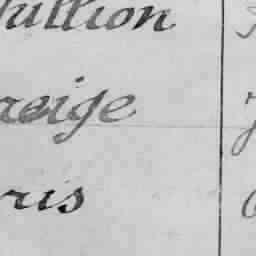 ullion
reige
ris